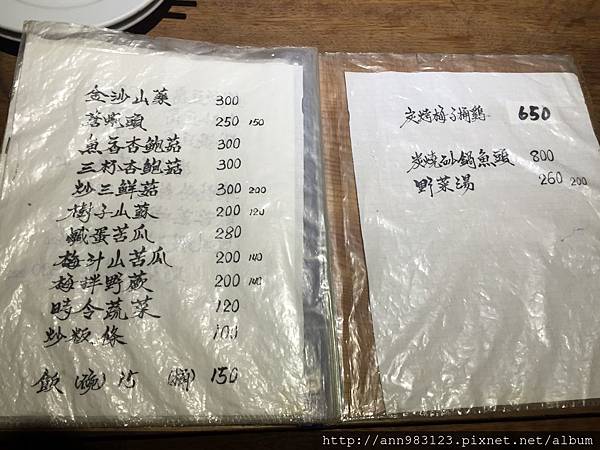 金沙山藥 300
蒼蠅頭 250 150
魚香杏鮑菇 300
三杯杏鮑菇 300
炒三鮮菇 300 200
樹子山蘇 200 120
鹹蛋苦瓜 280
梅汁山苦瓜 200 140
梅拌野蕨 200 140
時令蔬菜 120
炒粄條 100
飯(碗)15 (鍋)150
炭烤梅子桶鷄 650
炭燒砂鍋魚頭 800
野菜湯 260 200
http://ann983123.pixnet.net/album